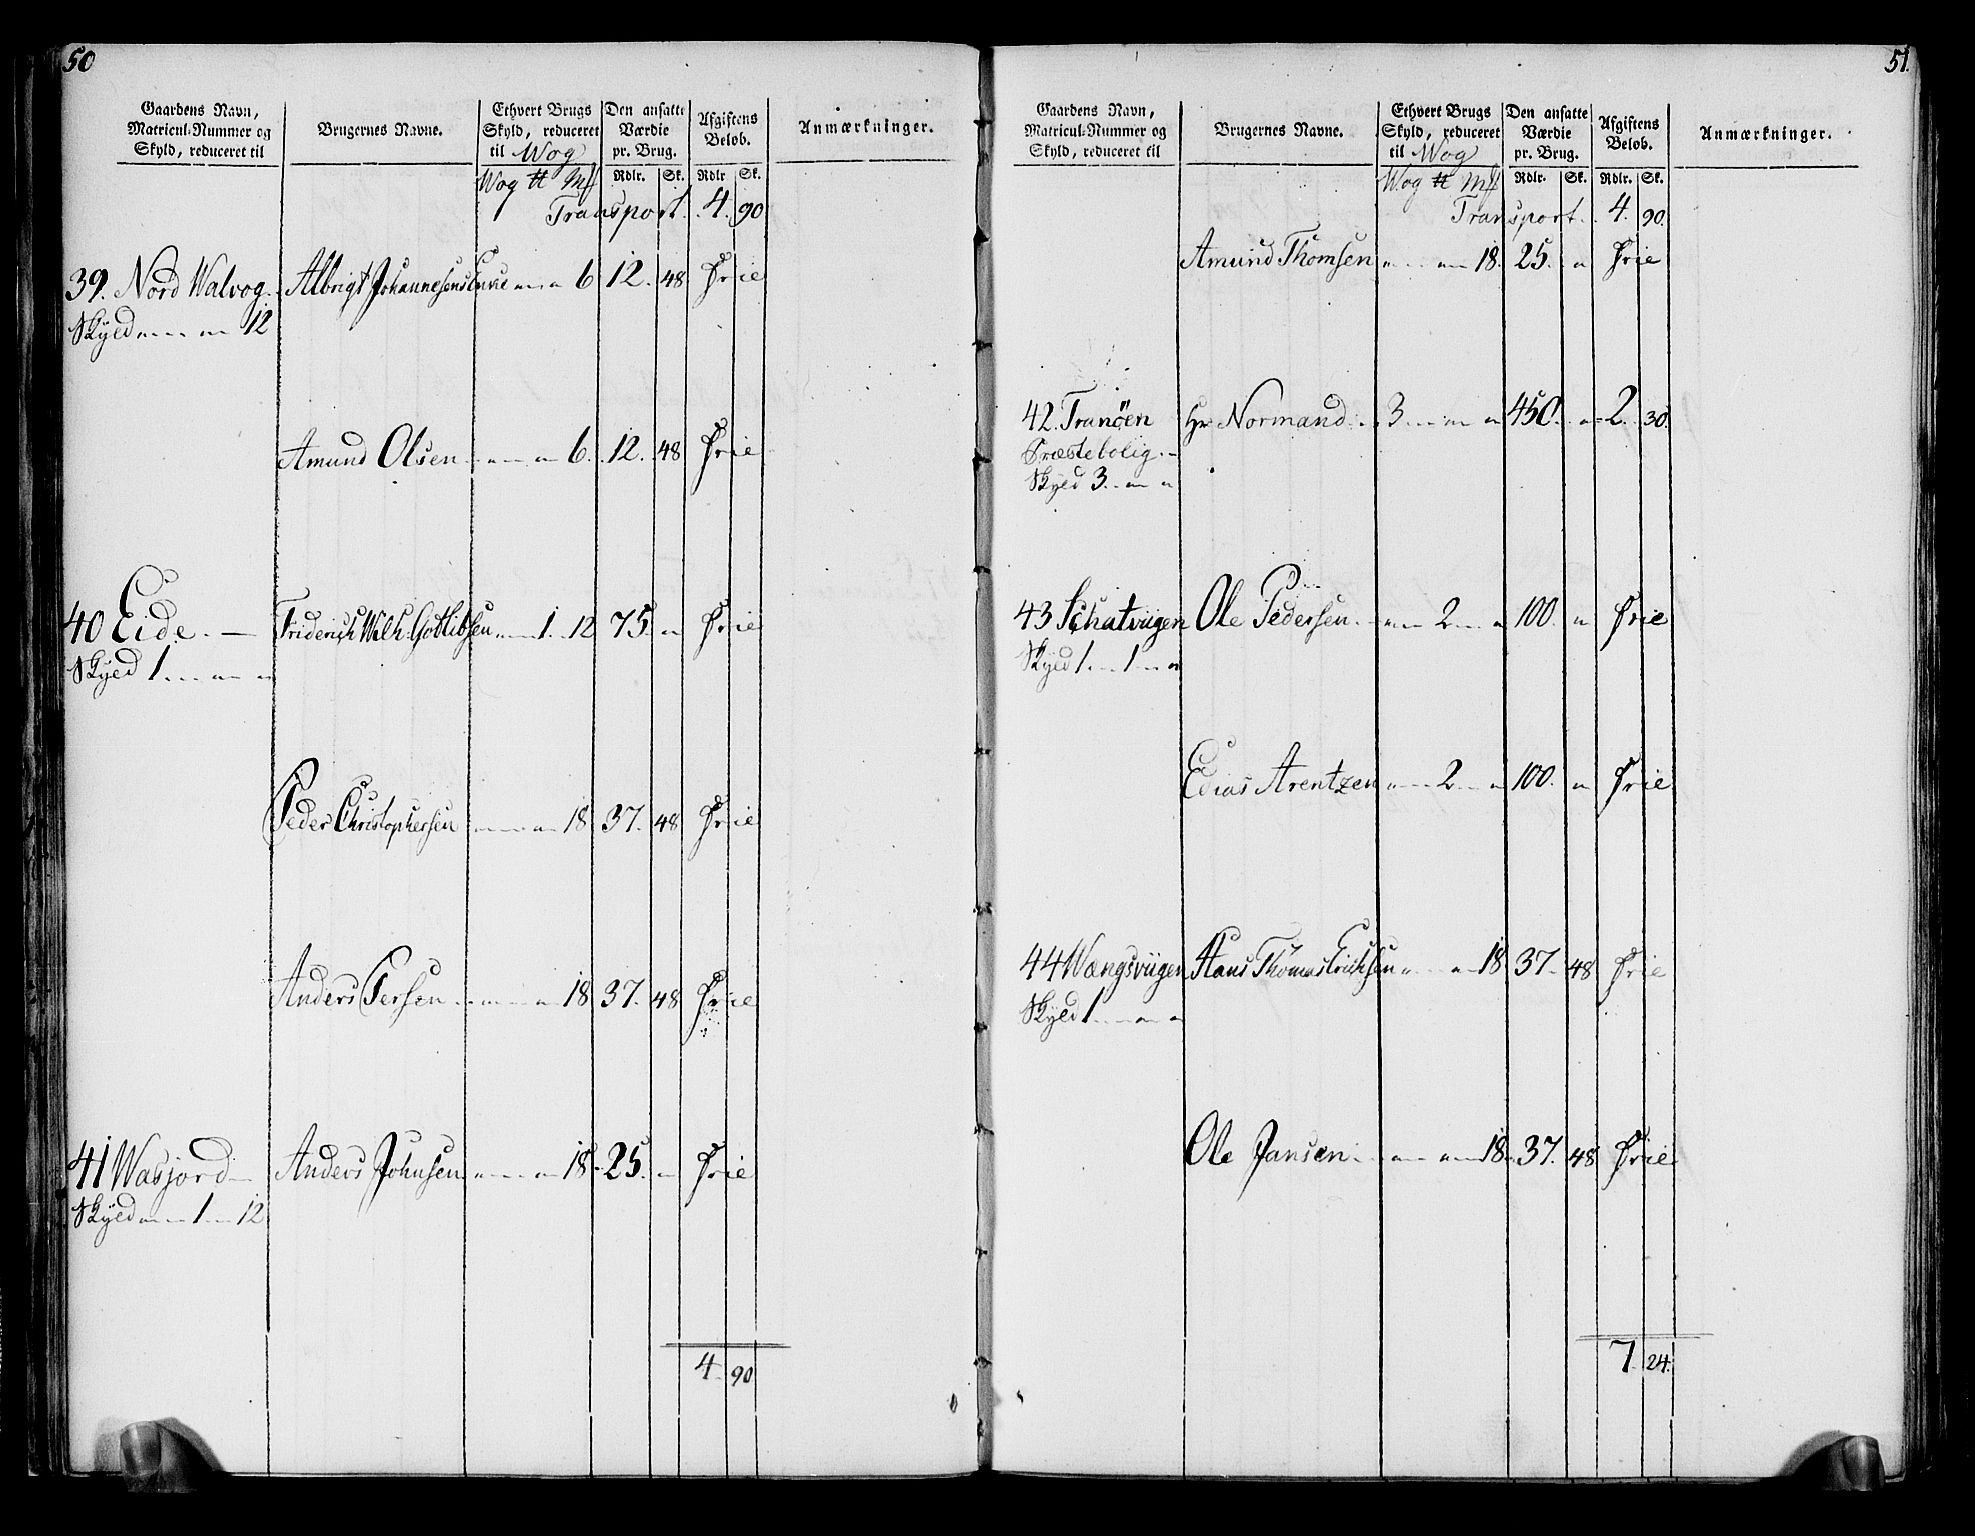 50
Gaardens Navn, Matricul-Nummer og Skyld, reduceret til | Brugernes Navne. | Ethvert Brugs Skyld, reduceret til Wog | Den ansatte Værdie pr. Brug. | Afgiftens Beløb. | Anmærkninger.
Wog ℔ Mk | Rdlr. | Sk. | Rdlr | Sk.
Transport. 4. 90
39. Nord Walvog. Albrigt Johannesens Enke „ „ 6 12. 48 Frie
Skyld „ „ 12
Amund Olsen „ „ 6. 12. 48 Frie
40 Eide. — Friderich Wilh: Gotlibsen „ 1. 12 75. „ Frie
Skyld 1 „ „
Peder Christophersen „ „ 18 37. 48 Frie
Anders Persen „ „ 18 37. 48 Frie
41 Wasjord Anders Johnsen „ „ 18. 25. „ Frie
Skyld „ 1 „ 12
4 90
51.
Gaardens Navn, Matricul-Nummer og Skyld, reduceret til | Brugernes Navne. | Ethvert Brugs Skyld, reduceret til Wog | Den ansatte Værdie pr. Brug. | Afgiftens Beløb. | Anmærkninger.
Wog ℔ Mk | Rdlr. | Sk. | Rdlr. | Sk.
Transport. 4. 90.
Amund Thomsen „ „ 18. 25. „ Frie
42. Tranöen Hr Normand 3 „ „ 450. „ 2. 30.
Præstebolig.
Skyld 3. „ „
43 Schatviigen Ole Pedersen „ 2 „ 100. „ Frie
Skyld 1 „ 1 „
Edias Arentzen „ 2 „ 100. „ Frie
44 Wængsviigen Hans Thomas Erichsen „ „ 18 37. 48 Frie
Skyld 1 „ „
Ole Jansen „ „ 18. 37. 48 Frie
7 24.